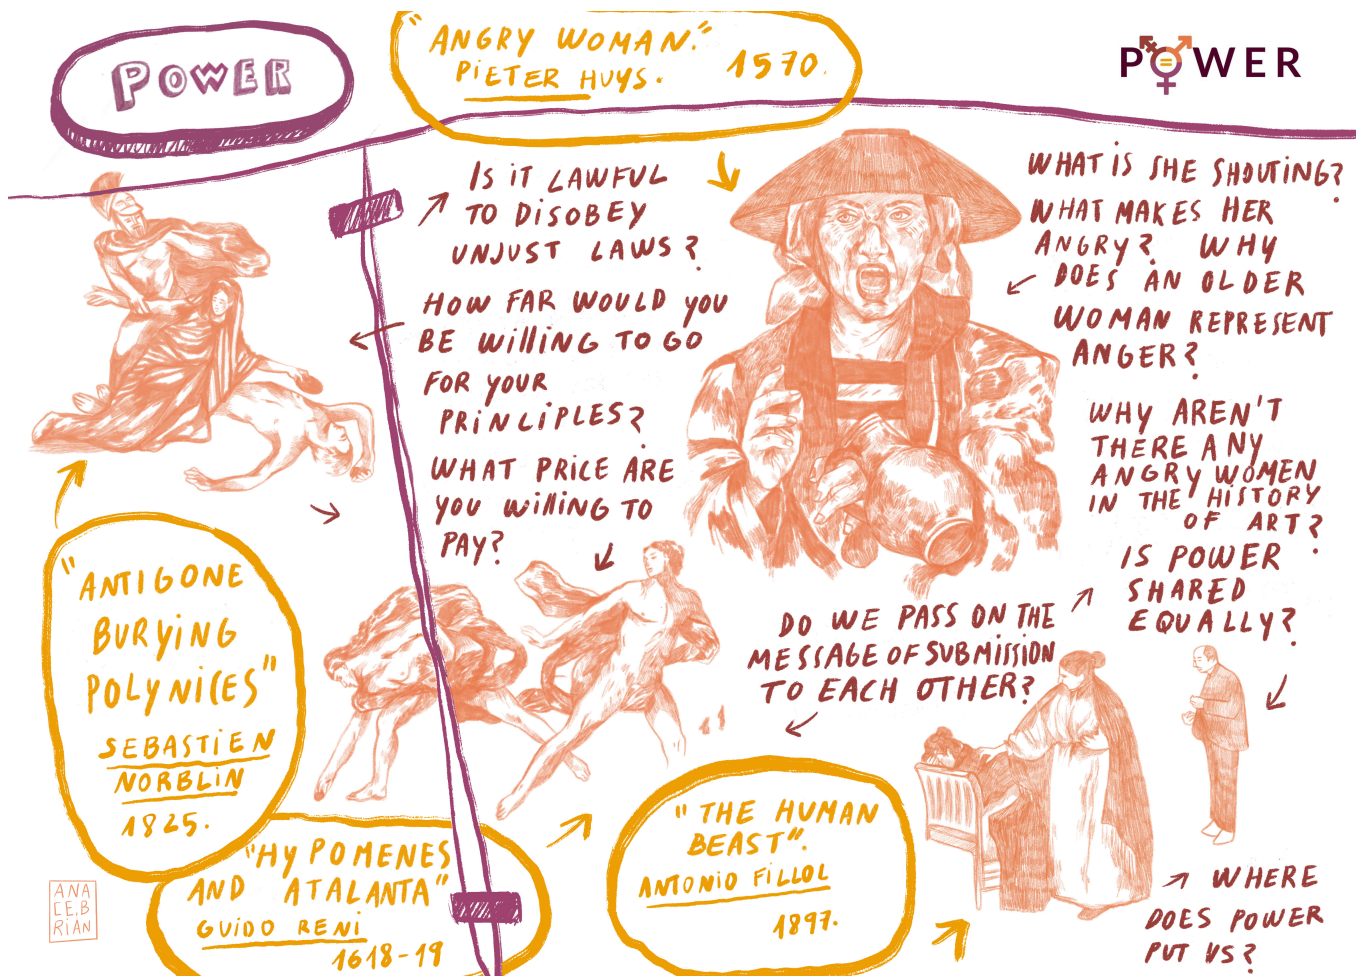 POWER
"ANGRY WOMAN."
PIETER HUYS.
1570.
POWER
IS IT LAWFUL
TO DISOBEY
UNJUST LAWS?
HOW FAR WOULD YOU
BE WILLING TO GO
FOR YOUR
PRINCIPLES?
WHAT PRICE ARE
YOU WILLING TO
PAY?
WHAT IS SHE SHOUTING?
WHAT MAKES HER
ANGRY? WHY
DOES AN OLDER
WOMAN REPRESENT
ANGER?
WHY AREN'T
THERE ANY
ANGRY WOMEN
IN THE HISTORY
OF ART?
IS POWER
SHARED
EQUALLY?
DO WE PASS ON THE
MESSAGE OF SUBMISSION
TO EACH OTHER?
"ANTIGONE
BURYING
POLYNICES"
SEBASTIEN
NORBLIN
1825.
"HYPOMENES
AND ATALANTA"
GUIDO RENI
1618-19
"THE HUMAN
BEAST".
ANTONIO FILLOL
1897.
WHERE
DOES POWER
PUT US?
ANA
CEB
RIAN